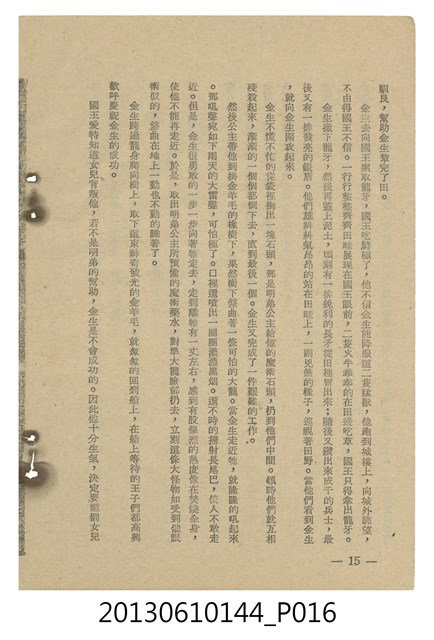 馴良，幫助金生犂完了田。
金生去向國王索取龍牙，國王吃驚極了，他不信金生能降服這二隻猛獸，他跑到城樓上，向城外眺望，
不由得國王不信。一行行整整齊齊田畦展現在國王眼前，二隻火牛乖乖的在田邊吃草，國王只得拿出龍牙。
金生撒下龍牙，然後再蓋上泥土，頃刻有一排銳利的長矛從田裡冒出來；隨後又鑽出來成千的兵士，最
後又有一排發亮的銀盾。他們雄糾糾氣昂昂的站在田畦上，一副兇煞的樣子，巡視著田野。當他們看到金生
，就向金生圍攻起來。
金生不慌不忙的從袋裡掏出一塊石頭，那是明弟公主給他的魔術石頭，扔到他們中間。頓時他們就互相
殘殺起來，漸漸的一個個都倒下去，直到最後一個。金生又完成了一件艱難的工作。
然後公主帶他到掛金羊毛的樣樹下，果然樹下盤曲著一條可怕的大龍。當金生走近牠，就隆隆的吼起來
。那吼聲宛如下雨天的大雷聲，可怕極了。口裡還噴出一團團濃濃黑烟。還不時的擺射長尾巴，使人不敢走
近。但是，金生很勇敢的一步一步向著牠走去，走到離牠有一丈左右，感到有股强烈的熱度像在焚燒全身，
使他不能再走近。於是，取出明弟公主所預備的魔術藥水，對準大龍臉部扔去，立刻這條大怪物如受到催眠
術似的，盤曲在地上一動也不動的睡著了。
金生跨過龍身爬向樹上，取下這束神奇發光的金羊毛，就匆匆的回到船上，在船上等待的王子們都高興
歡呼慶祝金生的成功。
國王愛特知道女兒背叛他，若不是明弟的幫助，金生是不會成功的。因此他十分生氣，決定要這個女兒
— 15 —
20130610144_P016